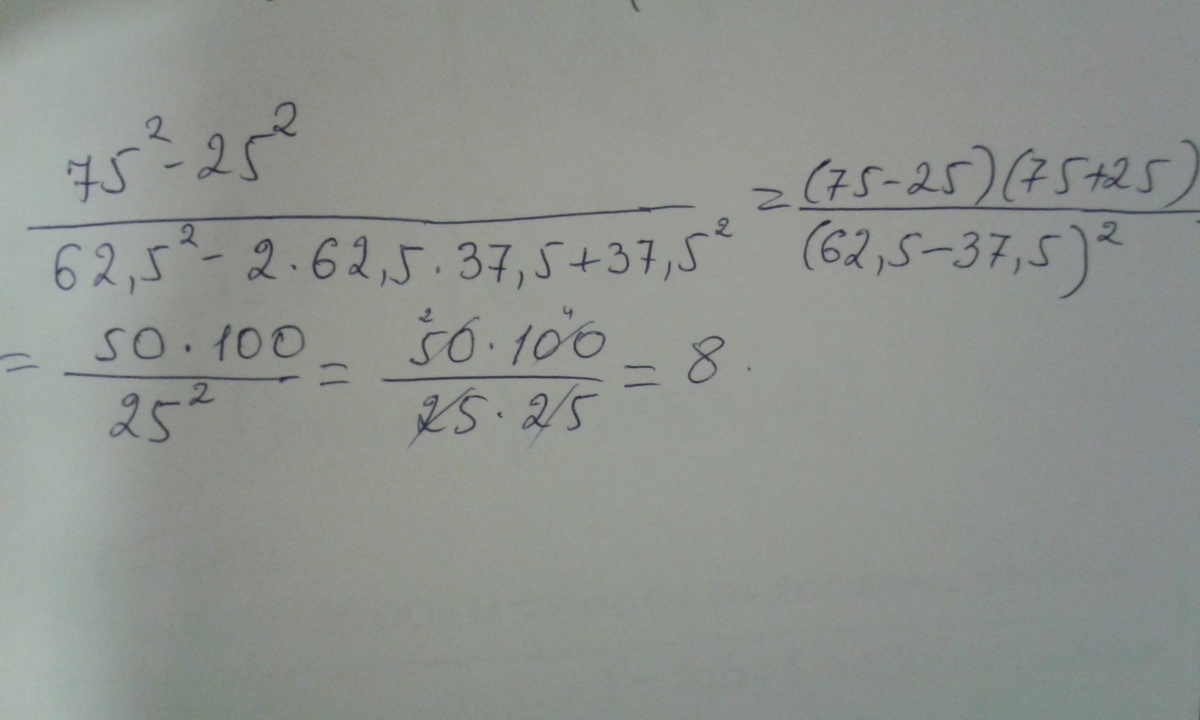 75² - 25² / 62,5² - 2·62,5·37,5+37,5² = (75-25)(75+25) / (62,5-37,5)²
= 50·100 / 25² = 50·100 / 25·25 = 8.